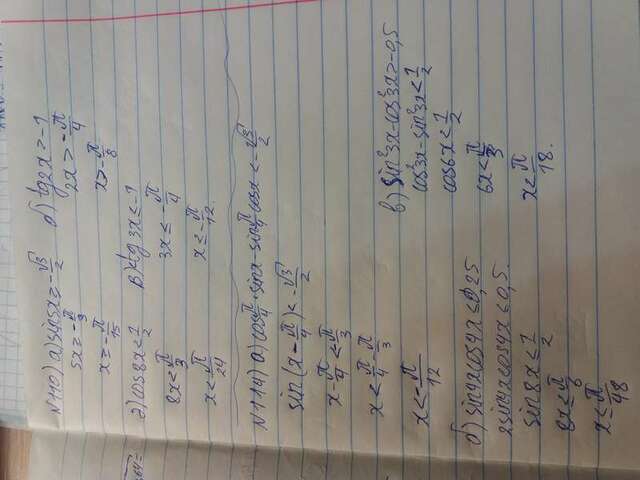 N110) а) sin5x ≥ -√3/2
5x ≥ -π/3
x ≥ -π/15
б) tg2x > -1
2x > -π/4
x > -π/8
г) cos8x < 1/2
8x < π/3
x < π/24
в) ctg3x ≤ -1
3x ≤ -π/4
x ≤ -π/12
N114) а) cos π/4 · sinx - sin π/4 cosx < -√3/2
sin(x - π/4) < -√3/2
x - π/4 < π/3
x < π/4 - π/3
x < -π/12
б) sin4xcos4x ≤ 0,25
2sin4xcos4x ≤ 0,5.
sin8x ≤ 1/2
8x ≤ π/6
x ≤ π/48
в) sin²3x - cos²3x > -0,5
cos²3x - sin²3x < 1/2
cos6x < 1/2
6x < π/3
x < π/18.